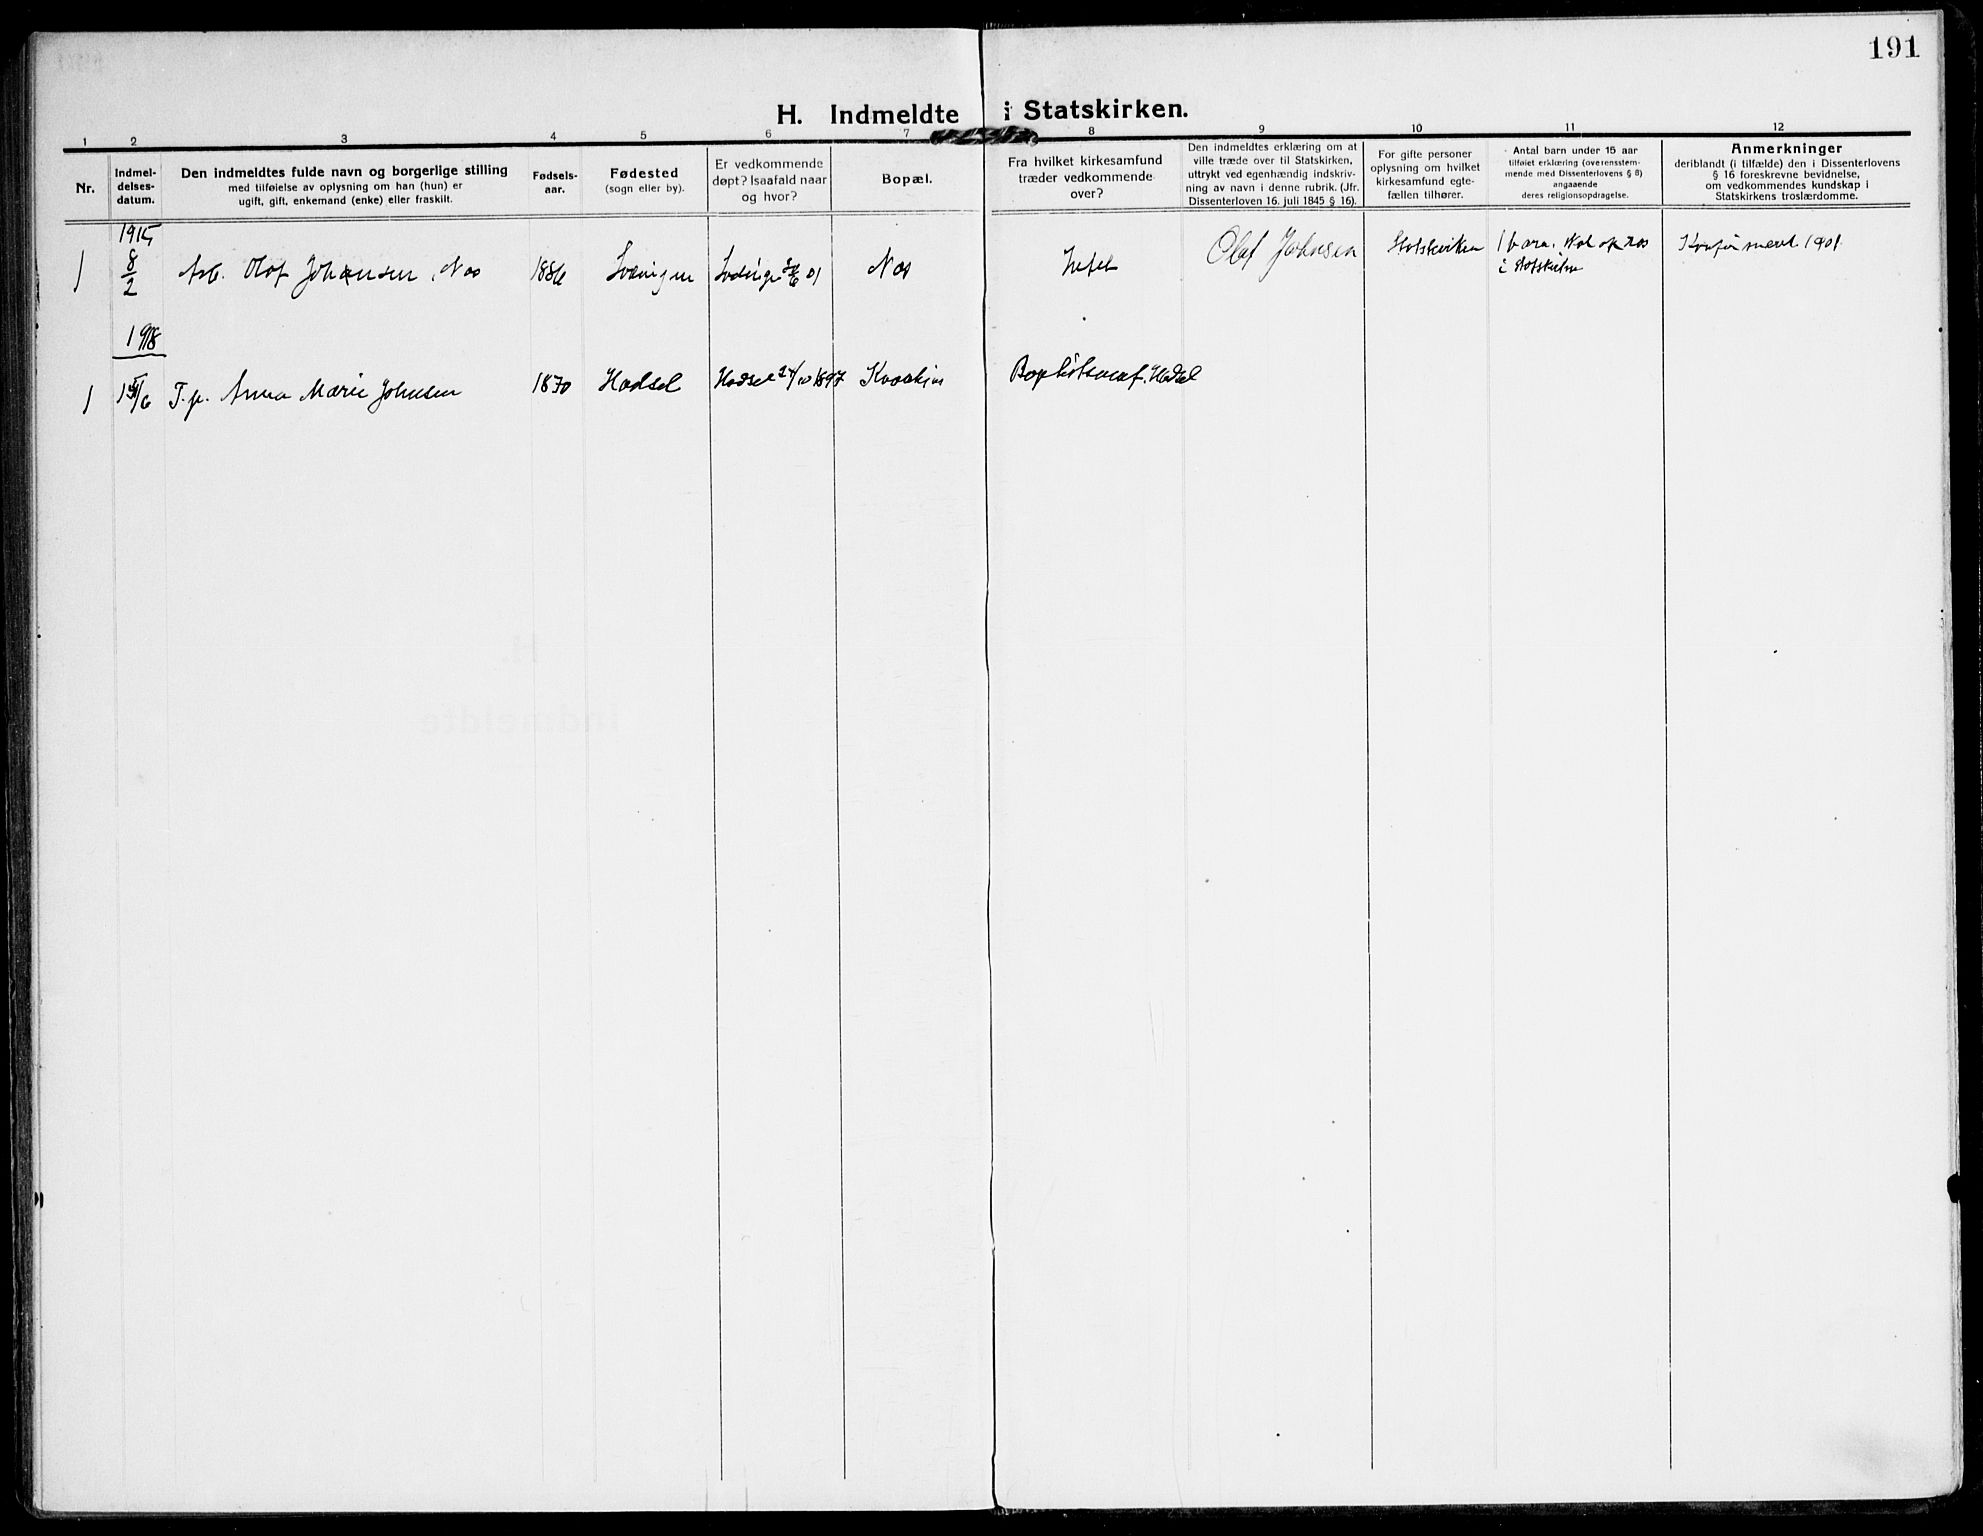 191
H. Indmeldte i Statskirken.
1 2 3 4 5 6 7 8 9 10 11 12
Nr.
Indmel-
delses-
datum.
Den indmeldtes fulde navn og borgerlige stilling
med tilføielse av oplysning om han (hun) er
ugift, gift, enkemand (enke) eller fraskilt.
Fødsels-
aar.
Fødested
(sogn eller by).
Er vedkommende
døpt? Isaafald naar
og hvor?
Bopæl.
Fra hvilket kirkesamfund
træder vedkommende
over?
Den indmeldtes erklæring om at
ville træde over til Statskirken,
uttrykt ved egenhændig indskriv-
ning av navn i denne rubrik. (Jfr.
Dissenterloven 16. juli 1845 § 16).
For gifte personer
oplysning om hvilket
kirkesamfund egte-
fællen tilhører.
Antal barn under 15 aar
tilføiet erklæring (overensstem-
mende med Dissenterlovens § 8)
angaaende
deres religionsopdragelse.
Anmerkninger
deriblandt (i tilfælde) den i Dissenterlovens
§ 16 foreskrevne bevidnelse,
om vedkommendes kundskap i
Statskirkens troslærdomme.
1915
1 8/2 Arb. Olaf Johansen, Nes 1886 Lødingen Lødingen 01 Nes Olaf Johnsen Statskirken 1 barn. Skal opdras
i Statskirken
Konfirmert 1901.
1918
1 T.p. Anna Marie Johnsen 1870 Hadsel Hadsel 1897 Hadsel